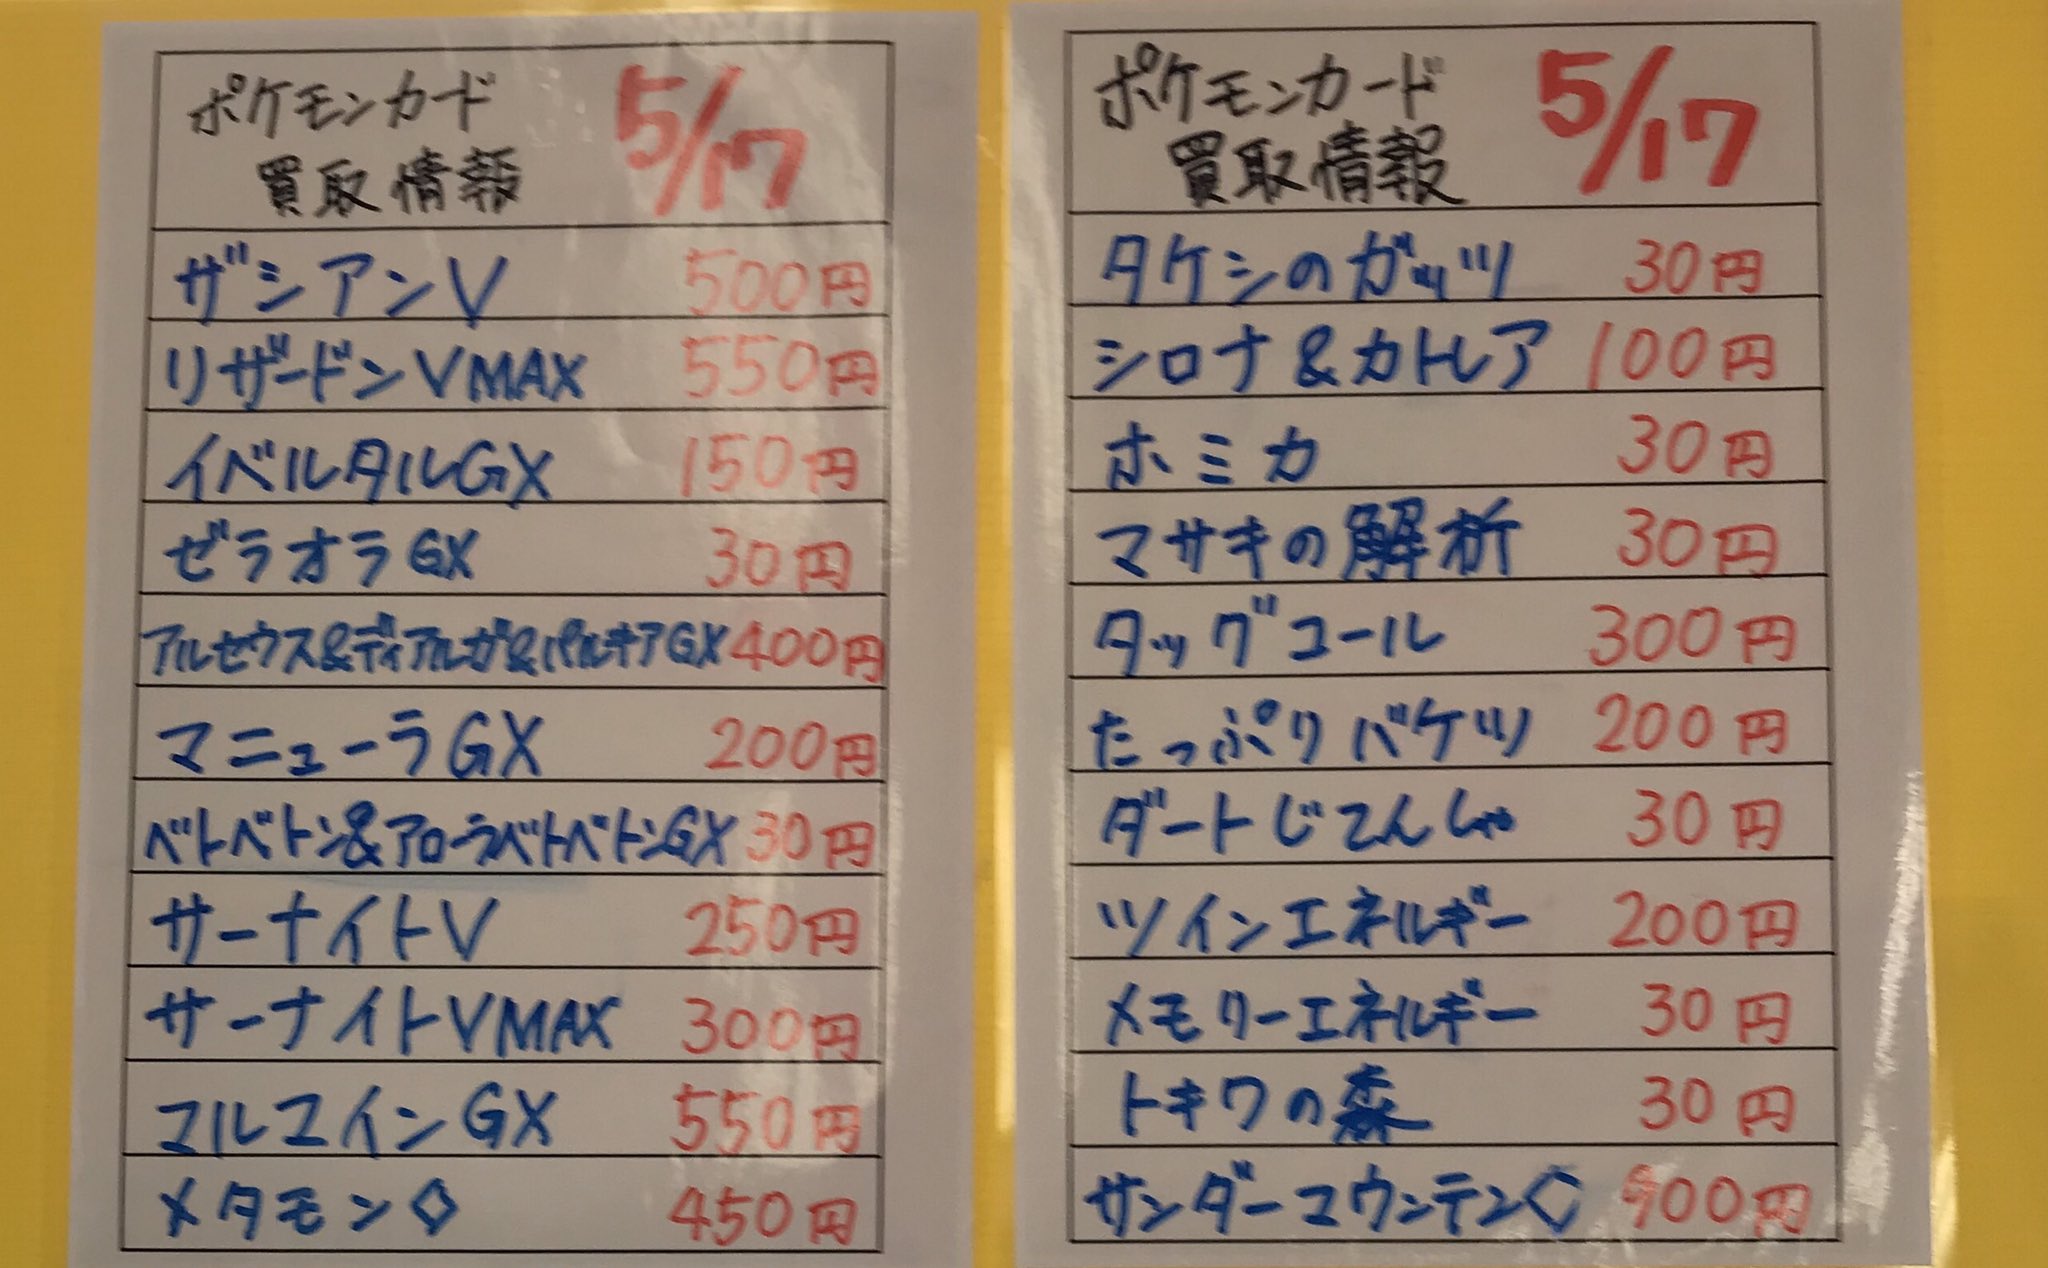 ポケモンカード 5/17
買取情報
ザシアンV 500円
リザードンVMAX 550円
イベルタルGX 150円
ゼラオラGX 30円
アルセウス&ディアルガ&パルキアGX 400円
マニューラGX 200円
ベトベトン&アローラベトベトンGX 30円
サーナイトV 250円
サーナイトVMAX 300円
コルコインGX 550円
メタモン◇ 450円
ポケモンカード 5/17
買取情報
タケシのガッツ 30円
シロナ&カトレア 100円
ホミカ 30円
マサキの解析 30円
タッグコール 300円
たっぷりバケツ 200円
ダートじてんしゃ 30円
ツインエネルギー 200円
メモリーエネルギー 30円
トキワの森 30円
サンダーマウンテン◇ 900円